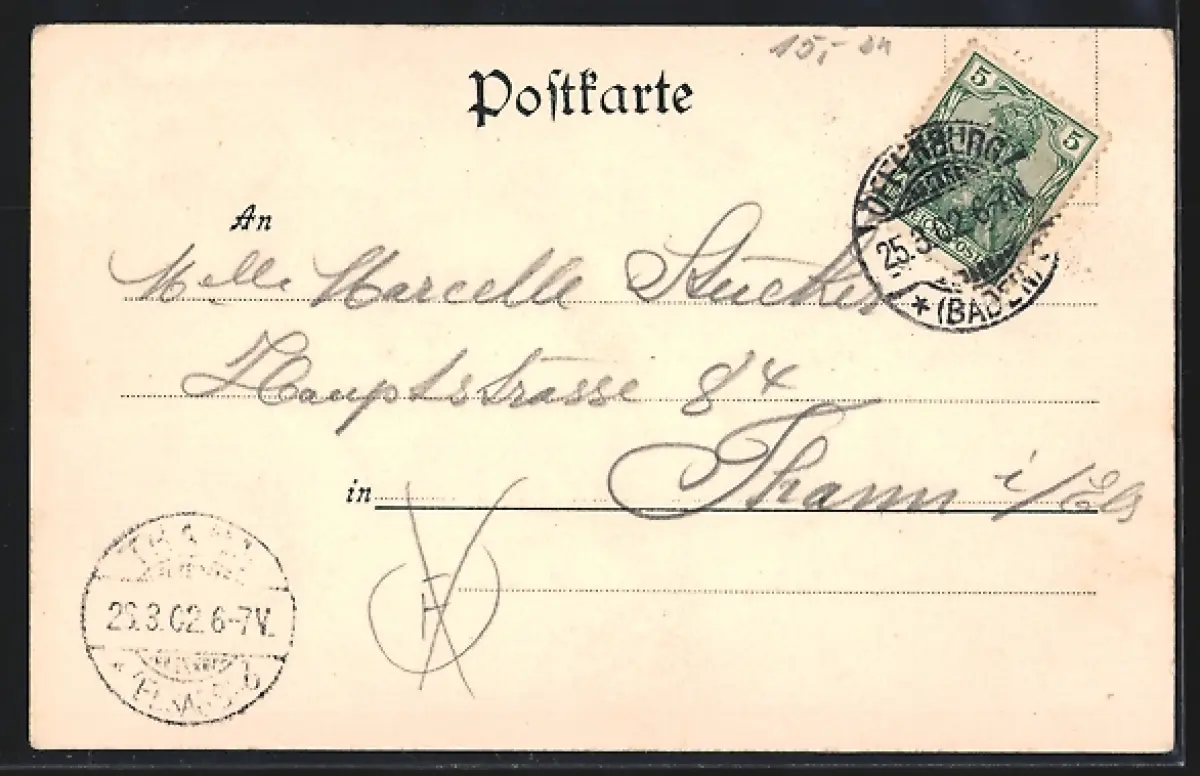 15,-
Postkarte
5 5
OFFENBURG
25.3.02.6-7N
* (BADEN)
An
Melle Marcelle Stücker
Hauptstrasse 84
in Thann i/Els
THANN
26.3.02.6-7V.
* (ELSASS) b
H